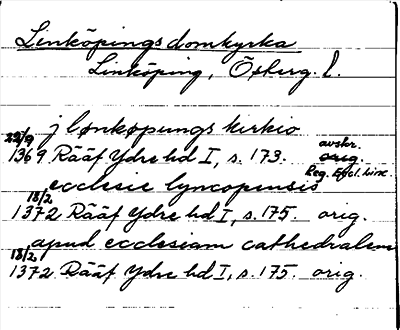 Linköpings domkyrka
Linköping, Österg. l.
j lønkøpungs kirkio
22/9 avskr.
1369 Rääf Ydre hd I, s. 173. orig.
Reg. Eccl. Linc.
ecclesie lyncopensis
18/2
1372 Rääf Ydre hd I, s. 175. orig.
apud ecclesiam cathedralem
18/2
1372 Rääf Ydre hd I, s. 175. orig.